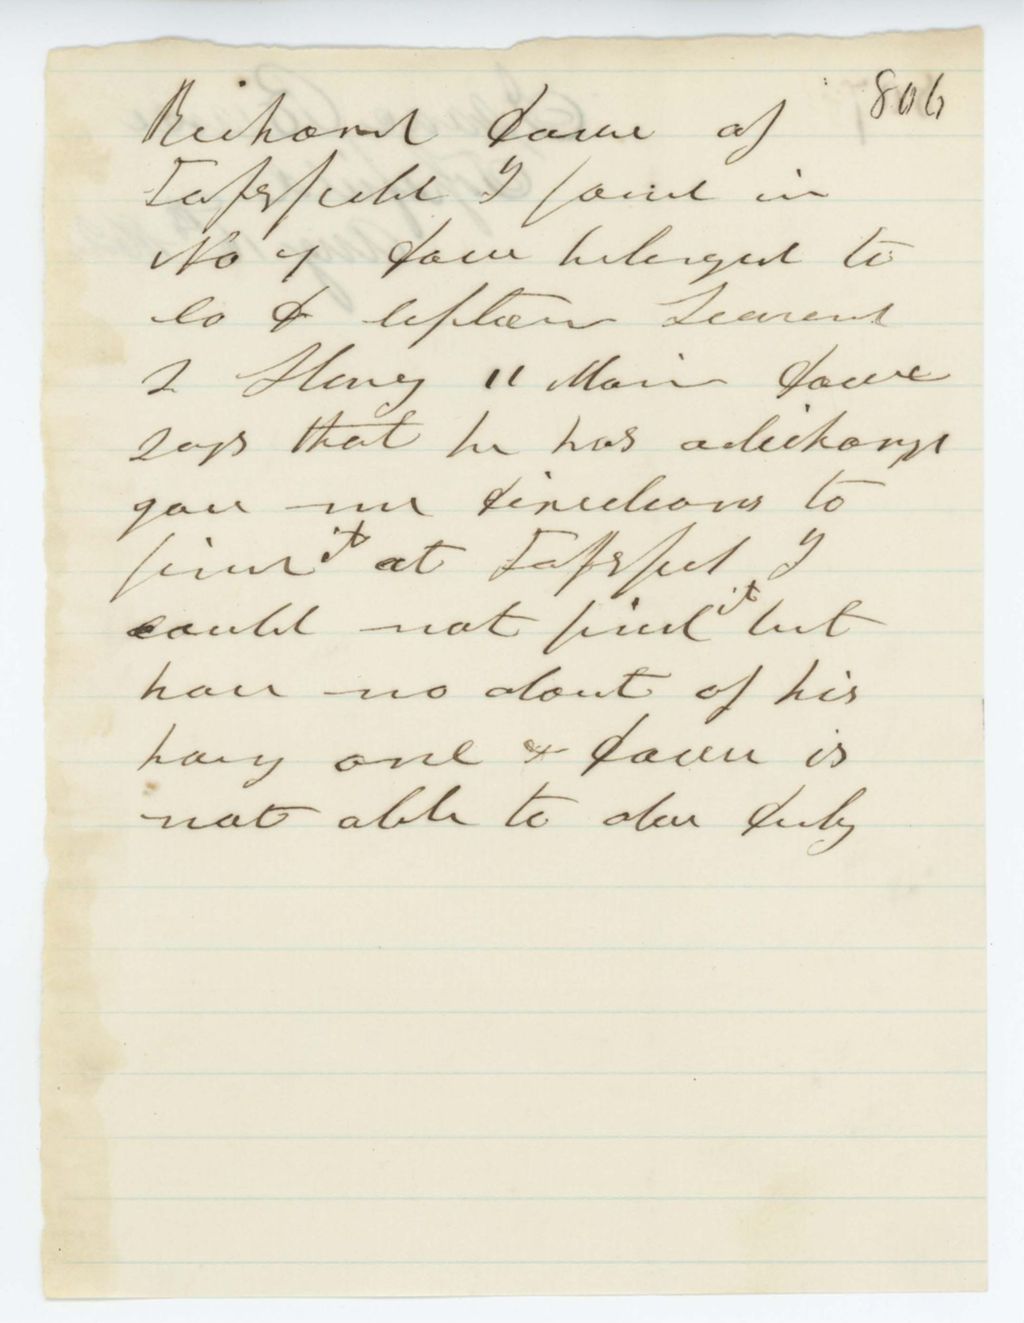 806
Richard Dave of
Topsfield I found in
No 4 Dave belonged to
Co D Captain
2 11 Main Dave
says that he has a discharge
gave me directions to
find it at Topsfield I
could not find it but
have no dout of his
having one & Dave is
not able to do duty